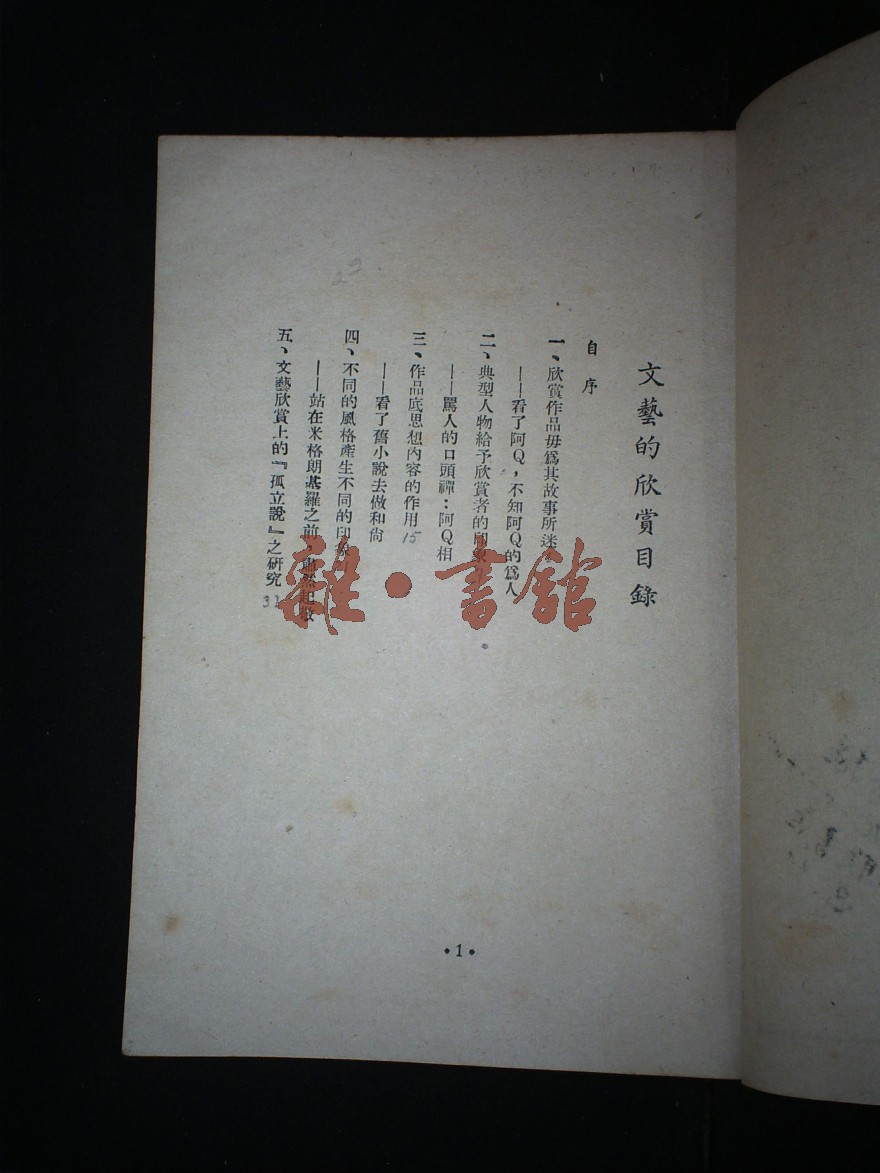 文藝的欣賞目錄
自序
一、欣賞作品毋爲其故事所迷
——看了阿Q，不知阿Q的爲人
二、典型人物給予欣賞者的印象
——罵人的口頭禪：阿Q相
三、作品底思想內容的作用 15
——看了舊小說去做和尙
四、不同的風格產生不同的印象
——站在米格朗基羅之前，肅然起敬
五、文藝欣賞上的『孤立說』之研究
29
•1•
雜•書館